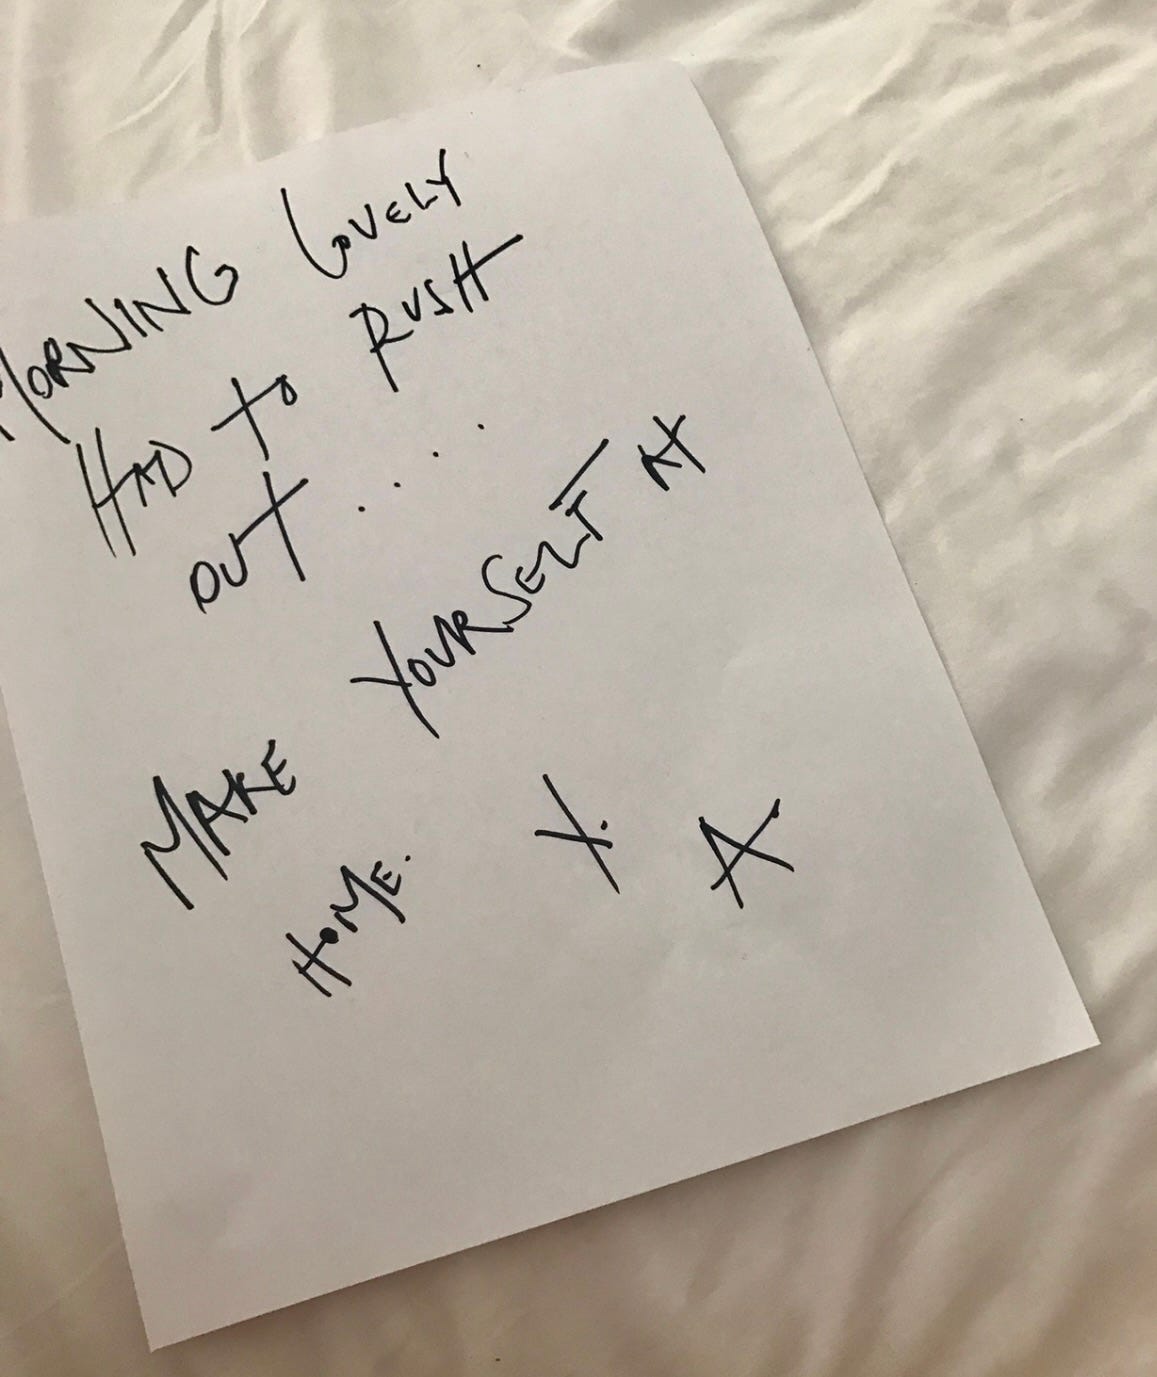 MORNING LOVELY
HAD TO RUSH
OUT....
MAKE YOURSELF AT
HOME.
X. A